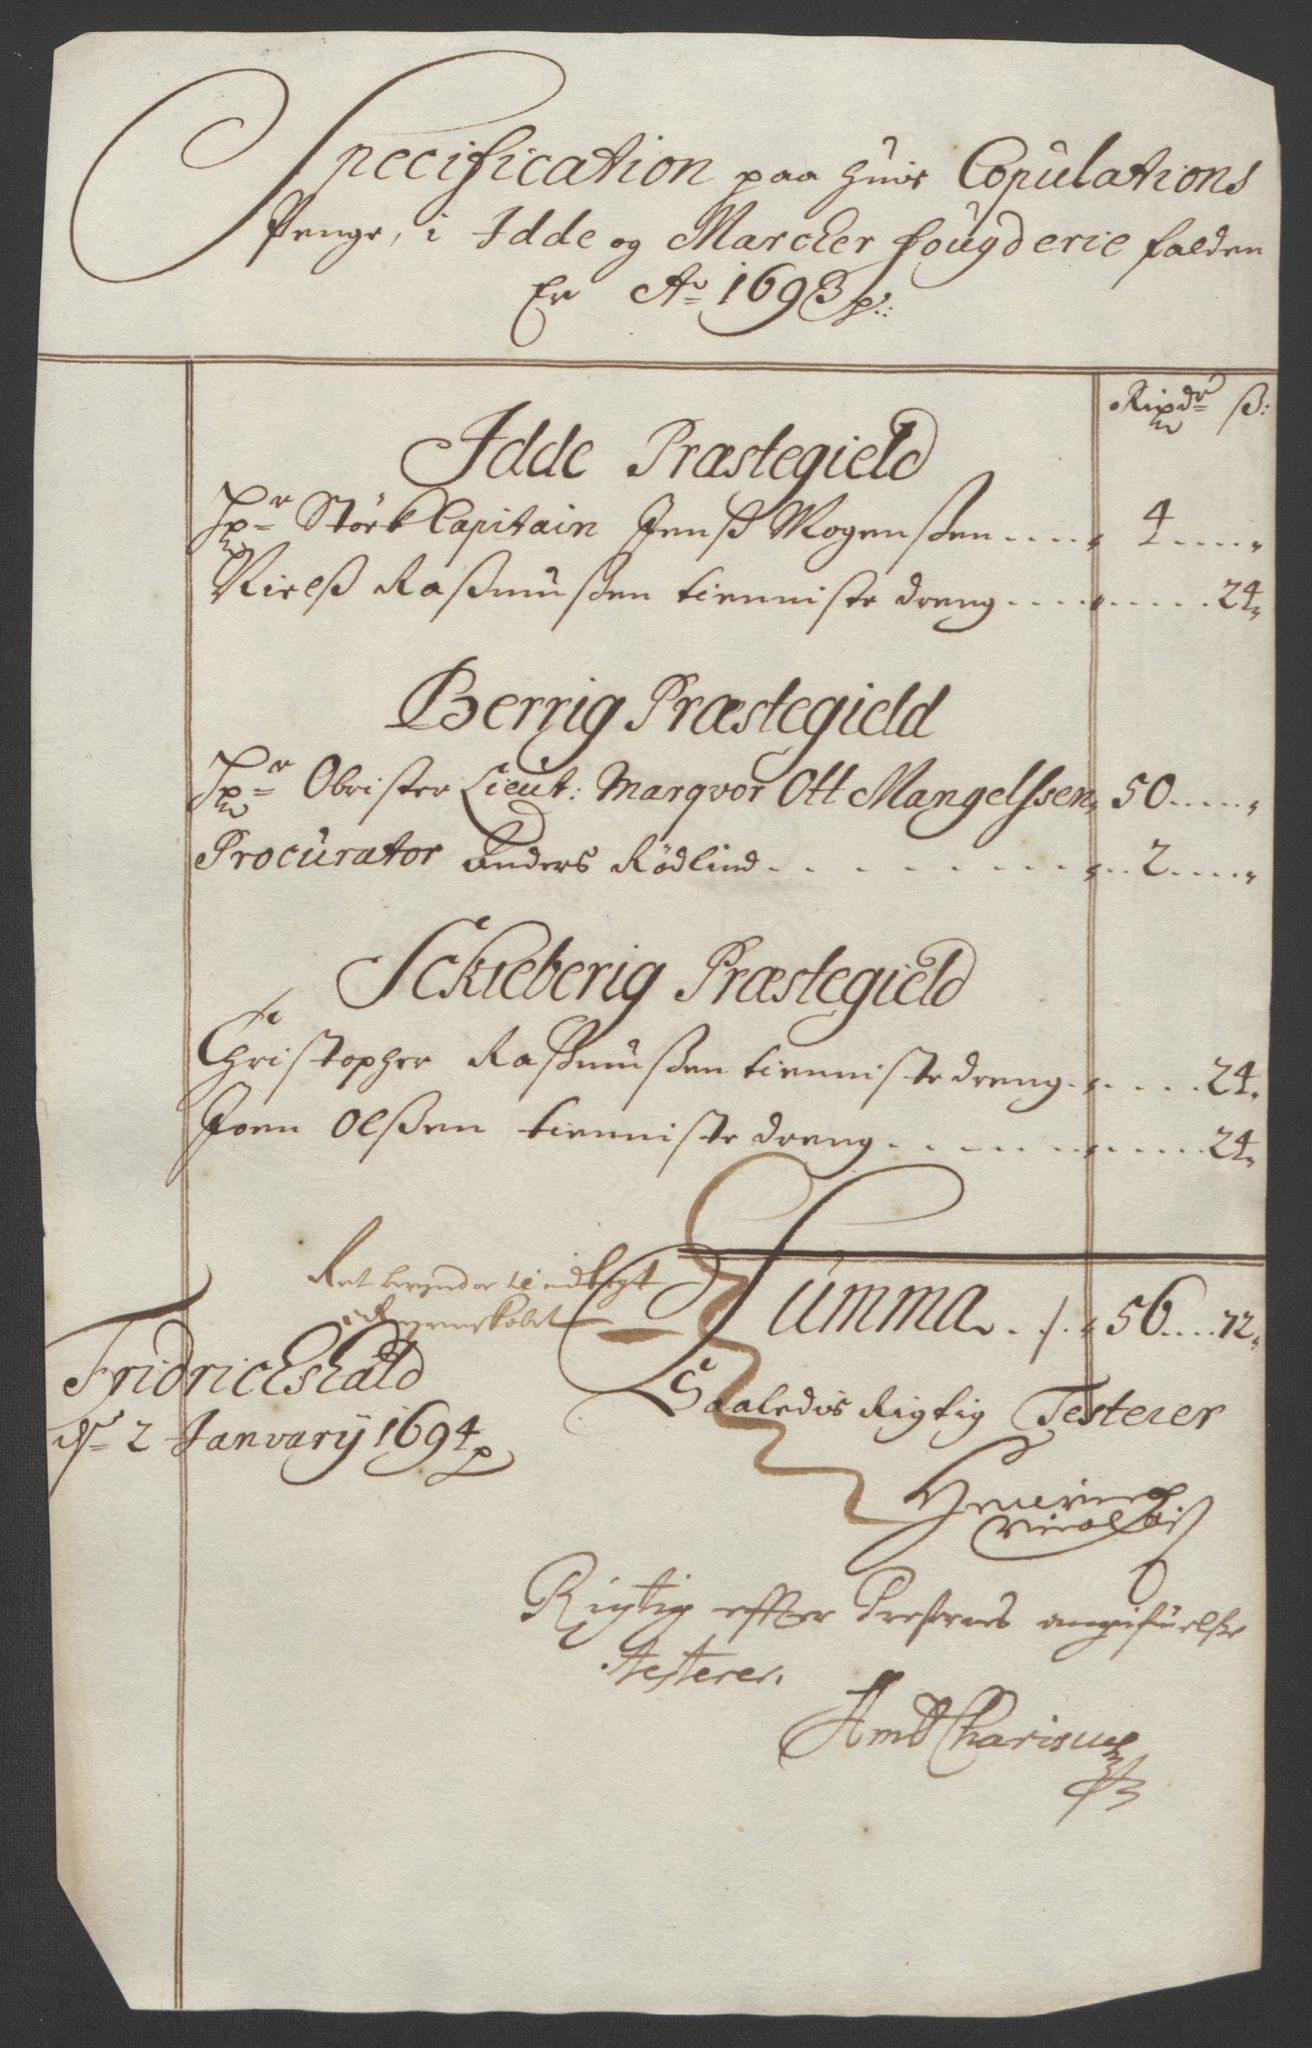 Specification paa huis Copulations
Penge, i Idde og Marcker fougderie falden
Er Ao 1693
Rixdr ß:
Idde Præstegield
Hr Støck Capitain Jenß Mogenßen .... 4 ....
Nielß Raßmußen tienniste dreng ........ 24
Berrig Præstegield
Hr Obrister Lieut: Marqvor Ott Mangelssen 50 ....
Procurator Anders Rødlind . . . . . . . . . 2 ....
Sckieberig Præstegield
Christopher Raßmußen tienniste dreng ..... 24
Joen Olßen tienniste dreng ........ 24
Ret til indtegt
Regenskabet
Summa . . 56 .... 72
Fridrichshald
d. 2 January 1694
Saaledis Rigtig Testerer
Rigtig effter Presternes angifuelse
testerer.
Amb Charisius